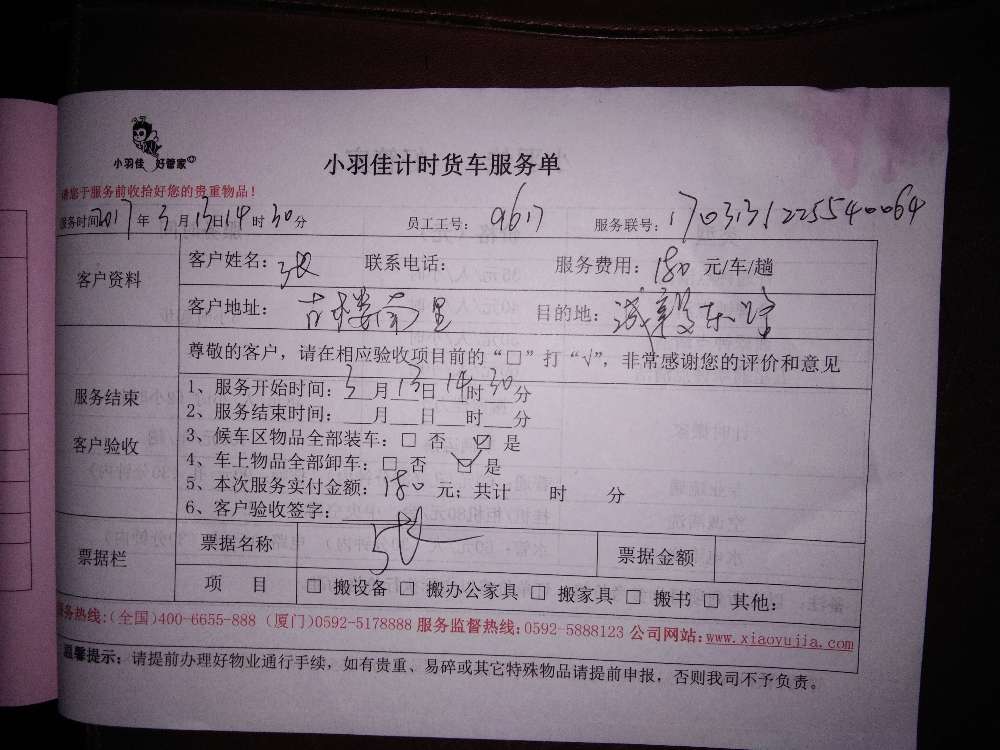 小羽佳 好管家
小羽佳计时货车服务单
请您于服务前收拾好您的贵重物品！
服务时间2017年3月13日14时30分 员工工号：9617 服务联号：17031312255540064
客户资料
客户姓名：张 联系电话： 服务费用：180元/车/趟
客户地址：古楼南里 目的地：诚毅东路
服务结束
客户验收
尊敬的客户，请在相应验收项目前的“□”打“√”，非常感谢您的评价和意见
1、服务开始时间：3月13日14时30分
2、服务结束时间：___月___日___时___分
3、候车区物品全部装车：□ 否 ☑ 是
4、车上物品全部卸车：□ 否 ☑ 是
5、本次服务实付金额：180元；共计 时 分
6、客户验收签字：张
票据栏
票据名称 票据金额
项 目 □ 搬设备 □ 搬办公家具 □ 搬家具 □ 搬书 □ 其他：
服务热线：（全国）400-6655-888 （厦门）0592-5178888 服务监督热线：0592-5888123 公司网站：www.xiaoyujia.com
温馨提示：请提前办理好物业通行手续，如有贵重、易碎或其它特殊物品请提前申报，否则我司不予负责。